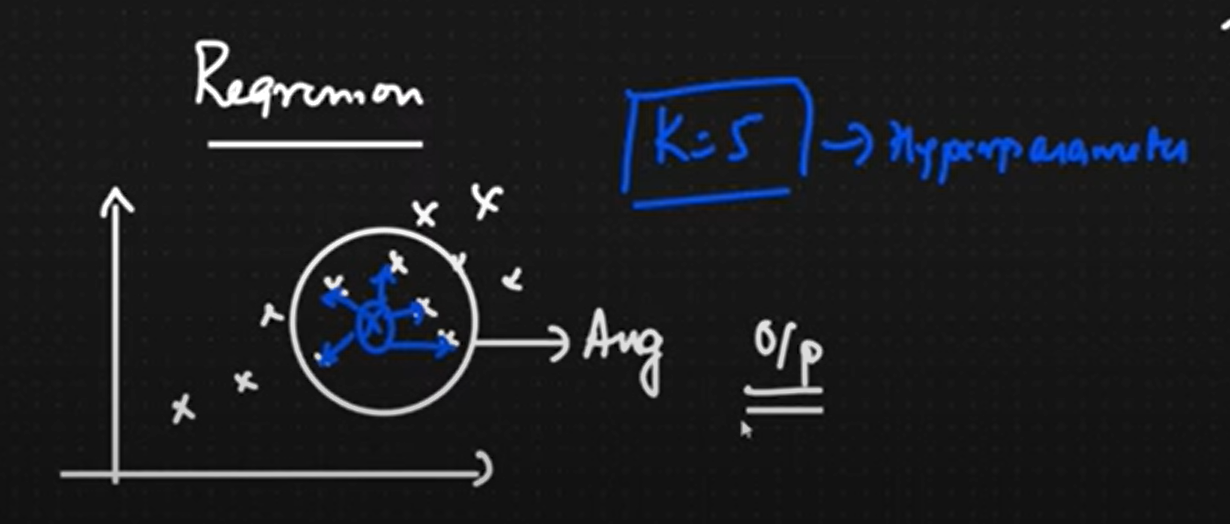 Regression
K = 5 → Hyperparameter
Avg O/p